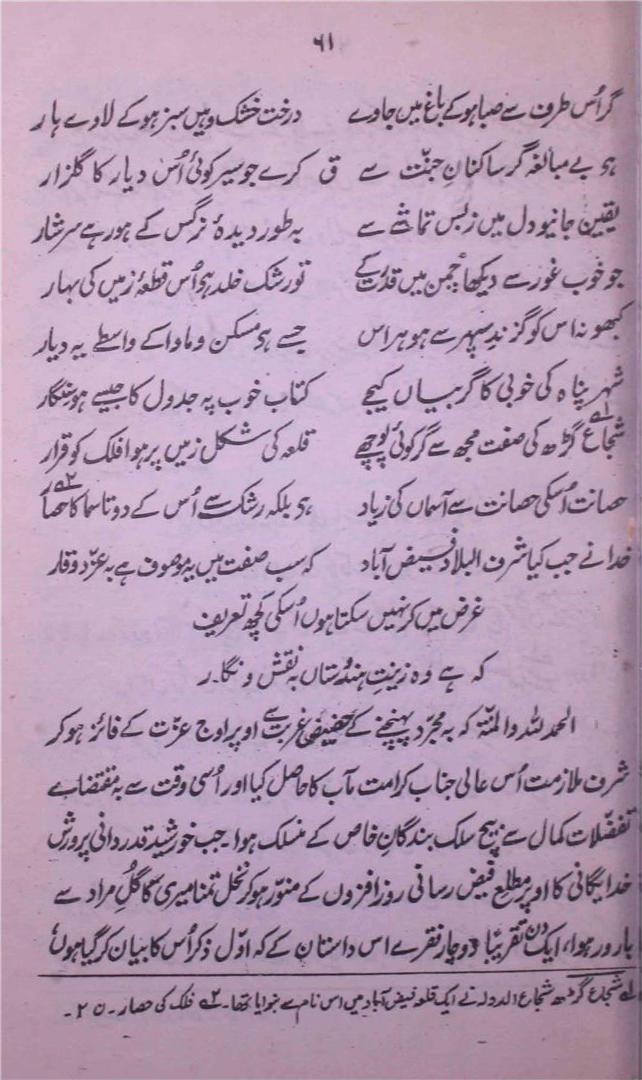 ۶۱
گر اُس طرف سے صبا ہو کے باغ میں جاوے درخت خشک وہیں سبز ہو کے لاوے بار
ہو بے مبالغہ گر ساکنانِ جنّت سے ق کرے جو سیر کوئی اُس دیار کا گلزار
یقین جانیو دل میں زبس تماشے سے بہ طور دیدۂ نرگس کے ہو رہے سرشار
جو خوب غور سے دیکھا چمن میں قدرت کے تو رشک خلد ہی اُس قطعۂ زمیں کی بہار
کبھو نہ اس کو گزندِ سپہر سے ہو ہراس جسے ہی مسکن و ماوا کے واسطے یہ دیار
شہر پناہ کی خوبی کا گر بیاں کیجے کتاب خوب پہ جدول کا جیسے ہو سنگار
شجاع گڑھ۱؎ کی صفت مجھ سے گر کوئی پوچھے قلعہ کی شکل زمیں پر ہوا فلک کو قرار
حصانت اُسکی حصانت سے آسماں کی زیاد ہی بلکہ رشک سے اُس کے دوتا سما کا حصار۲؎
خدا نے جب کیا شرف البلاد فیض آباد کہ سب صفت میں یہ موصوف ہے بہ عزّ و وقار
غرض میں کر نہیں سکتا ہوں اُسکی کچھ تعریف
کہ ہے وہ زینتِ ہندُستاں بہ نقش و نگار
الحمد للہ والمنّۃ کہ بہ مجرّد پہنچنے کے حضیضِ غربت سے اوپر اوج عزّت کے فائز ہو کر
شرف ملازمت اُس عالی جناب کرامت مآب کا حاصل کیا اور اُسی وقت سے بہ مقتضاے
تفضّلات کمال سے بیچ سلک بندگانِ خاص کے منسلک ہوا۔ جب خورشید قدردانی پرورش
خدایگانی کا اوپر مطلع فیض رسانی روز افزوں کے منوّر ہو کر نخل تمنا میری کا گلِ مراد سے
بارور ہوا، ایک دن تقریباً دو چار نقرے اس داستان کے کہ اوّل ذکر اُس کا بیان کر گیا ہوں
۱؎ شجاع گڑھ شجاع الدولہ نے ایک قلعہ فیض آباد میں اس نام سے بنوایا تھا۔ ۲؎ فلک کی حصار۔ ن ۲۔